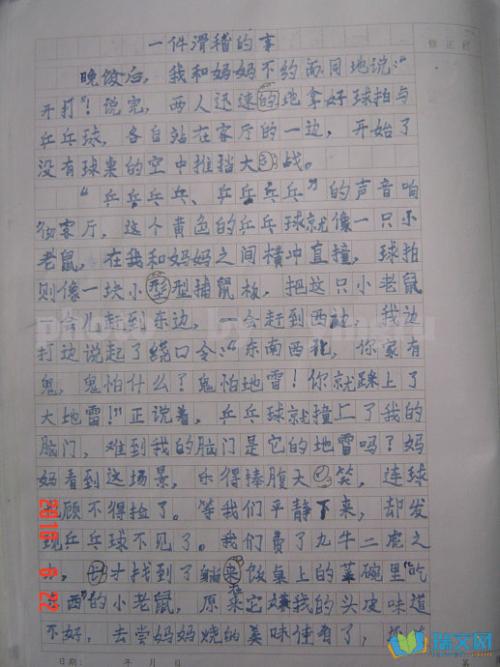 一件滑稽的事
晚饭后，我和妈妈不约而同地说：“
开打”！说完，两人迅速的地拿好球拍与
乒乓球，各自站在客厅的一边，开始了
没有球桌的空中推挡大战。
“乒乒乓乓、乒乒乓乓”的声音响
彻客厅，这个黄色的乒乓球就像一只小
老鼠，在我和妈妈之间横冲直撞，球拍
则像一块小型型捕鼠板，把这只小老鼠
一会儿赶到东边，一会赶到西边，我边
打边说起了绕口令：“东南西北，你家有
鬼，鬼怕什么？鬼怕地雷！你就踩上了
大地雷！”正说着，乒乓球就撞上了我的
脑门，难到我的脑门是它的地雷吗？妈
妈看到这场景，乐得捧腹大笑，连球
顾不得捡了。等我们平静下来，却发
现乒乓球不见了。我们费了九牛二虎之
，才找到了躺来饭桌上的菜碗里“吃
西”的小老鼠，原来它嫌我的头皮味道
不好，去尝妈妈烧的美味佳肴了，
2010 6 22
修正栏
日期： 年 月 日
瑞文网